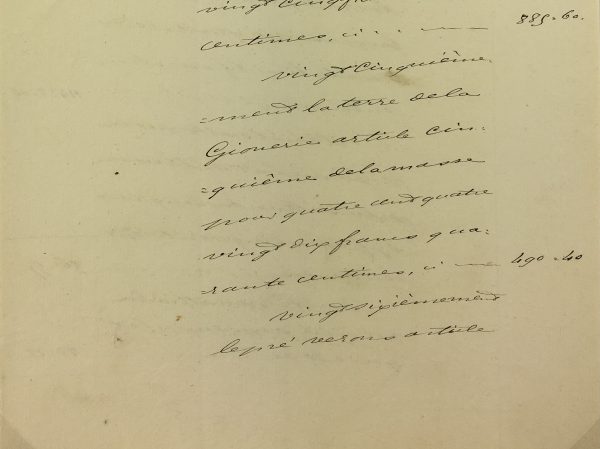 vingt cinq fr
centimes, ci 885=60.
vingt cinquième
=ment la terre de la
Gionerie article cin=
=quième de la masse
pour quatre cent quatre
vingt dix francs qua=
rante centimes, ci 490=40
vingt sixièmement
le pré verons article